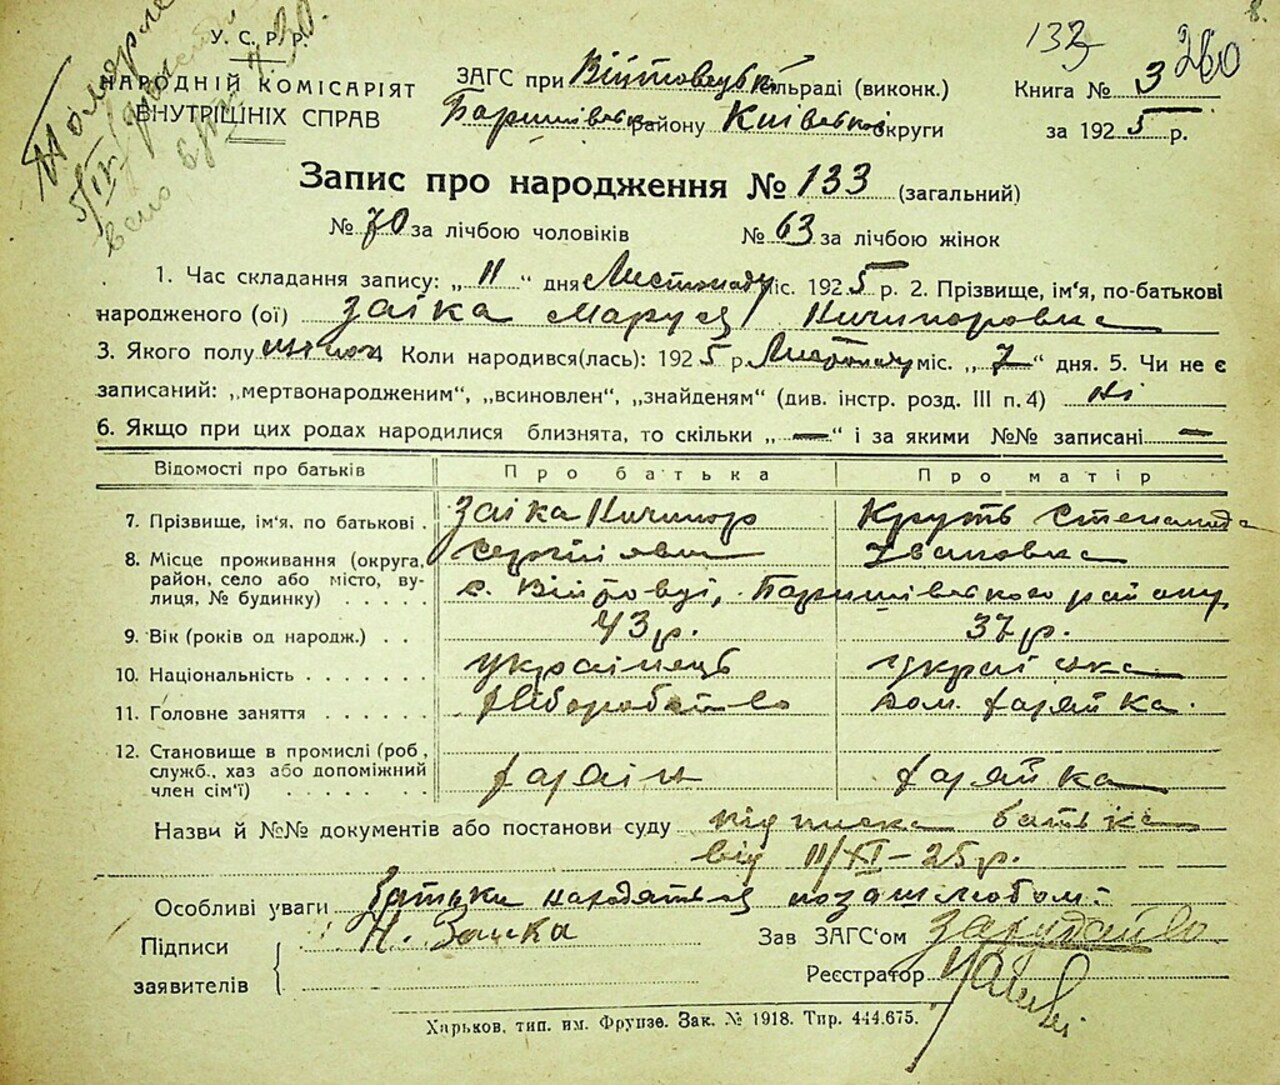 8.
133 260
У. С. Р. Р.
НАРОДНІЙ КОМІСАРІЯТ
ВНУТРІШНІХ СПРАВ
ЗАГС при Війтовецьк. сільраді (виконк.)
Баришівськ. району Київської округи
Книга № 3
за 1925 р.
Запис про народження № 133 (загальний)
№ 70 за лічбою чоловіків № 63 за лічбою жінок
1. Час складання запису: „ 11 “ дня Листопаду міс. 1925 р. 2. Прізвище, ім‘я, по-батькові
народженого (ої) Заїка Маруся Ничипоровна
3. Якого полу жіноч Коли народився(лась): 1925 р. Листопаду міс. „ 7 “ дня. 5. Чи не є
записаний: „мертвонародженим“, „всиновлен“, „знайденям“ (див. інстр. розд. III п. 4) Ні
6. Якщо при цих родах народилися близнята, то скільки „ — “ і за якими №№ записані —
Відомості про батьків Про батька Про матір
7. Прізвище, ім‘я, по батькові . Заїка Ничипор Круть Степанида
8. Місце проживання (округа, Сергійович Івановна
район, село або місто, ву-
лиця, № будинку) . . . . . с. Війтовці, Баришівського району
9. Вік (років од народж.) . . 43 р. 37 р.
10. Національність . . . . . . . українець українка
11. Головне заняття . . . . . . хліборобство дом. хазяйка.
12. Становище в промислі (роб.,
служб., хаз або допоміжний хазяін хазяйка
член сім‘ї) . . . . . . .
Назви й №№ документів або постанови суду підписка батька
від 11/XI – 25 р.
Особливі уваги Батьки находяться поза шлюбом.
Підписи Н. Заика Зав ЗАГС‘ом
заявителів Реєстратор
Харьков, тип. им. Фрунзе. Зак. № 1918. Тир. 444.675.